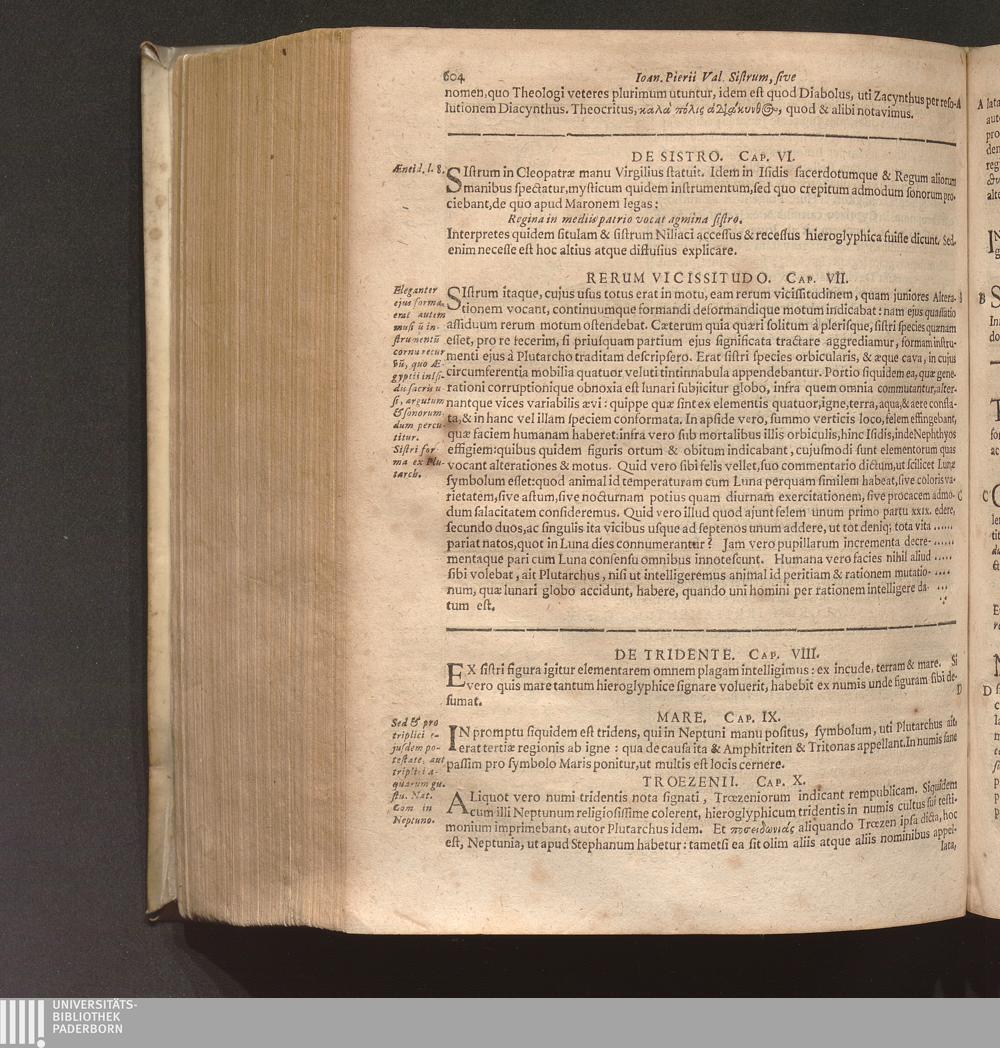 604
Ioan. Pierii Val. Siſtrum, ſive
nomen, quo Theologi veteres plurimum utuntur, idem eſt quod Diabolus, uti Zacynthus per reſo-
lutionem Diacynthus. Theocritus, καλὰ πόλις ἁ Ζάκυνθος, quod & alibi notavimus.
A
DE SISTRO. CAP. VI.
Æneid. l. 8.
SIſtrum in Cleopatræ manu Virgilius ſtatuit. Idem in Iſidis ſacerdotumque & Regum aliorum
manibus ſpectatur, myſticum quidem inſtrumentum, ſed quo crepitum admodum ſonorum pro-
ciebant, de quo apud Maronem legas:
Regina in mediis patrio vocat agmina ſiſtro.
Interpretes quidem ſitulam & ſiſtrum Niliaci acceſſus & receſſus hieroglyphica fuiſſe dicunt. Sed
enim neceſſe eſt hoc altius atque diſtuſius explicare.
RERUM VICISSITUDO. CAP. VII.
Eleganter
ejus forma.
erat autem
muſi ū in-
ſtrumentū
cornu recur
vū, quo Æ-
gyptii in Iſi-
dis ſacris u-
ſi, argutum
& ſonorum-
dum percu-
titur.
Siſtri for-
ma ex Plu-
tarch.
SIſtrum itaque, cujus uſus totus erat in motu, eam rerum viciſſitudinem, quam juniores Altera-
tionem vocant, continuumque formandi deformandique motum indicabat: nam ejus quaſſatio
aſſiduum rerum motum oſtendebat. Cæterum quia quæri ſolitum à pleriſque, ſiſtri ſpecies quænam
eſſet, pro re fecerim, ſi priuſquam partium ejus ſignificata tractare aggrediamur, formam inſtru-
menti ejus à Plutarcho traditam deſcripſero. Erat ſiſtri ſpecies orbicularis, & æque cava, in cujus
circumferentia mobilia quatuor veluti tintinnabula appendebantur. Portio ſiquidem ea, quæ gene-
rationi corruptionique obnoxia eſt lunari ſubjicitur globo, infra quem omnia commutantur, alter-
nantque vices variabilis ævi: quippe quæ ſint ex elementis quatuor, igne, terra, aqua, & aere confla-
ta, & in hanc vel illam ſpeciem conformata. In apſide vero, ſummo verticis loco, felem effingebant,
quæ faciem humanam haberet: infra vero ſub mortalibus illis orbiculis, hinc Iſidis, inde Nephthyos
effigiem: quibus quidem figuris ortum & obitum indicabant, cujuſmodi ſunt elementorum quas
vocant alterationes & motus. Quid vero ſibi felis vellet, ſuo commentario dictum, ut ſcilicet Lunæ
ſymbolum eſſet: quod animal id temperaturam cum Luna perquam ſimilem habeat, ſive coloris va-
rietatem, ſive aſtum, ſive nocturnam potius quam diurnam exercitationem, ſive procacem admo-
dum ſalacitatem conſideremus. Quid vero illud quod ajunt felem unum primo partu xxix. edere,
ſecundo duos, ac ſingulis ita vicibus uſque ad ſeptenos unum addere, ut tot deniq; tota vita
pariat natos, quot in Luna dies connumerantur? Jam vero pupillarum incrementa decre-
mentaque pari cum Luna conſenſu omnibus innoteſcunt. Humana vero facies nihil aliud
ſibi volebat, ait Plutarchus, niſi ut intelligeremus animal id peritiam & rationem mutatio-
num, quæ lunari globo accidunt, habere, quando uni homini per rationem intelligere da-
tum eſt.
C
DE TRIDENTE. CAP. VIII.
EX ſiſtri figura igitur elementarem omnem plagam intelligimus: ex incude, terram & mare. Si
vero quis mare tantum hieroglyphice ſignare voluerit, habebit ex numis unde figuram ſibi de-
ſumat.
D
MARE. CAP. IX.
Sed & pro
triplici e-
juſdem po-
teſtate, aut
triplici a-
quarum gu-
ſtu. Nat.
Com in
Neptuno.
IN promptu ſiquidem eſt tridens, qui in Neptuni manu poſitus, ſymbolum, uti Plutarchus ait,
erat tertiæ regionis ab igne: qua de cauſa ita & Amphitriten & Tritonas appellant. In numis ſane
paſſim pro ſymbolo Maris ponitur, ut multis eſt locis cernere.
TROEZENII. CAP. X.
ALiquot vero numi tridentis nota ſignati, Trœzeniorum indicant rempublicam. Siquidem
cum illi Neptunum religioſiſſime colerent, hieroglyphicum tridentis in numis cultus ſui teſti-
monium imprimebant, autor Plutarchus idem. Et ποσειδωνιάς aliquando Trœzen ipſa dicta, hoc
eſt, Neptunia, ut apud Stephanum habetur: tametſi ea ſit olim aliis atque aliis nominibus appel-
lata,
UNIVERSITÄTS-
BIBLIOTHEK
PADERBORN